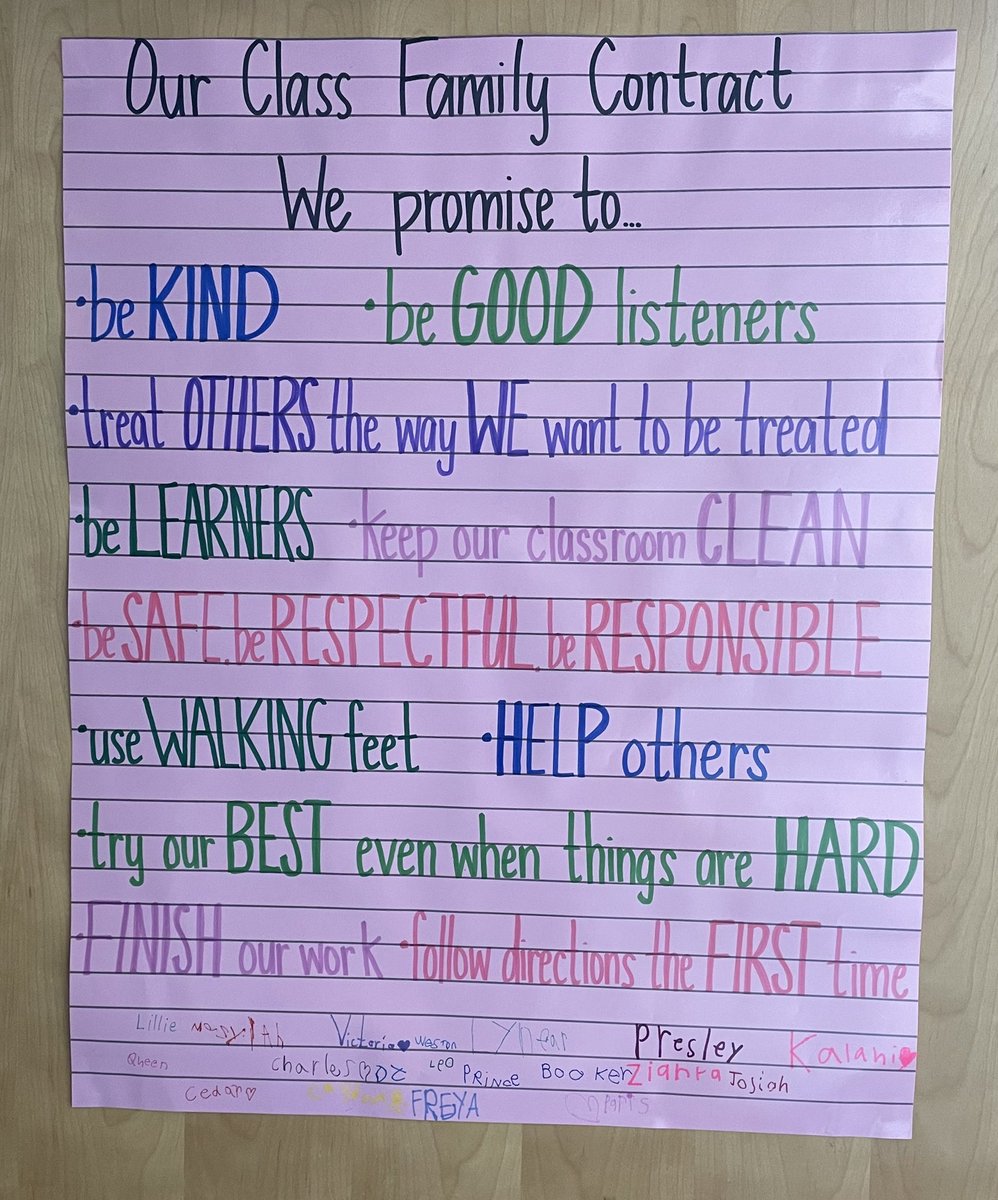 Our Class Family Contract
We promise to...
·be KIND ·be GOOD listeners
·treat OTHERS the way WE want to be treated
·be LEARNERS ·keep our classroom CLEAN
·be SAFE. be RESPECTFUL. be RESPONSIBLE
·use WALKING feet ·HELP others
·try our BEST even when things are HARD
·FINISH our work ·follow directions the FIRST time
Lillie Victoria Weston Presley Kalani
Queen Charles Leo PRINCE BOOKer Zianra Josiah
Cedar FREYA Paris